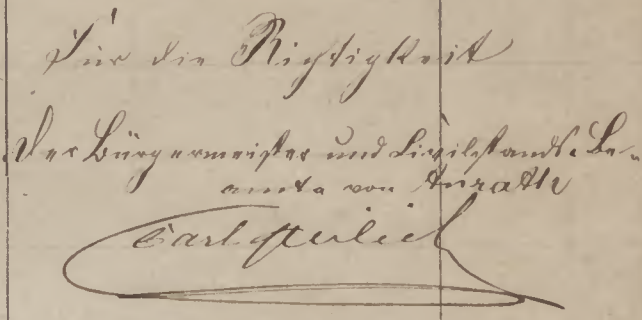 Für die Richtigkeit
Der Bürgermeister und Civilstands-Be-
amte von Anrath
Carl